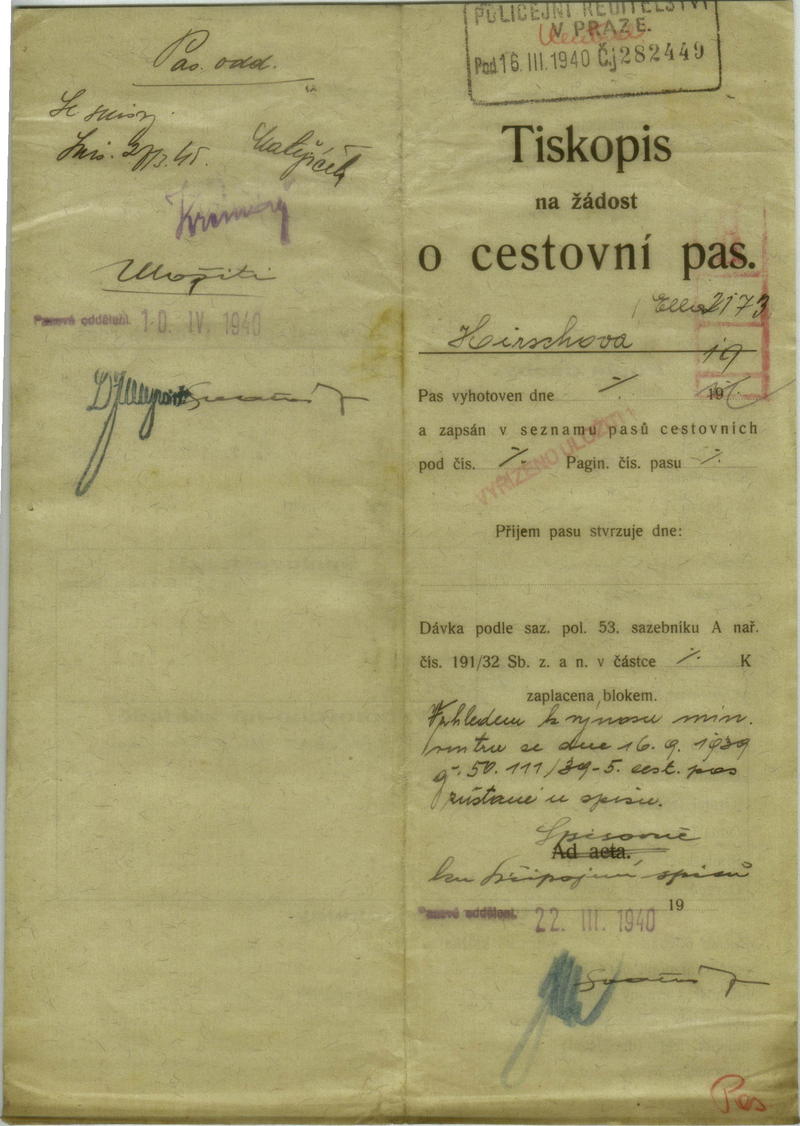 Pas. odd.
Uložiti
Pasové oddělení. 10. IV. 1940
POLICEJNÍ ŘEDITELSTVÍ
V PRAZE.
Pod 16. III. 1940 Čj 282449
Tiskopis
na žádost
o cestovní pas.
Ella 2173
Hirschova
19
Pas vyhotoven dne ·/· 19
a zapsán v seznamu pasů cestovních
pod čís. ·/· Pagin. čís. pasu ·/·
VYŘÍZENO ULOŽITI!
Přijem pasu stvrzuje dne:
Dávka podle saz. pol. 53. sazebníku A nař.
čís. 191/32 Sb. z. a n. v částce ·/· K
zaplacena blokem.
Vzhledem k výnosu min.
vnitra ze dne 16. 9. 1939
č. 50.111/39-5. cest. pas
zůstane u spisu.
Spisovně
Ad acta.
ku připojení spisů
19
Pasové oddělení. 22. III. 1940
Pas